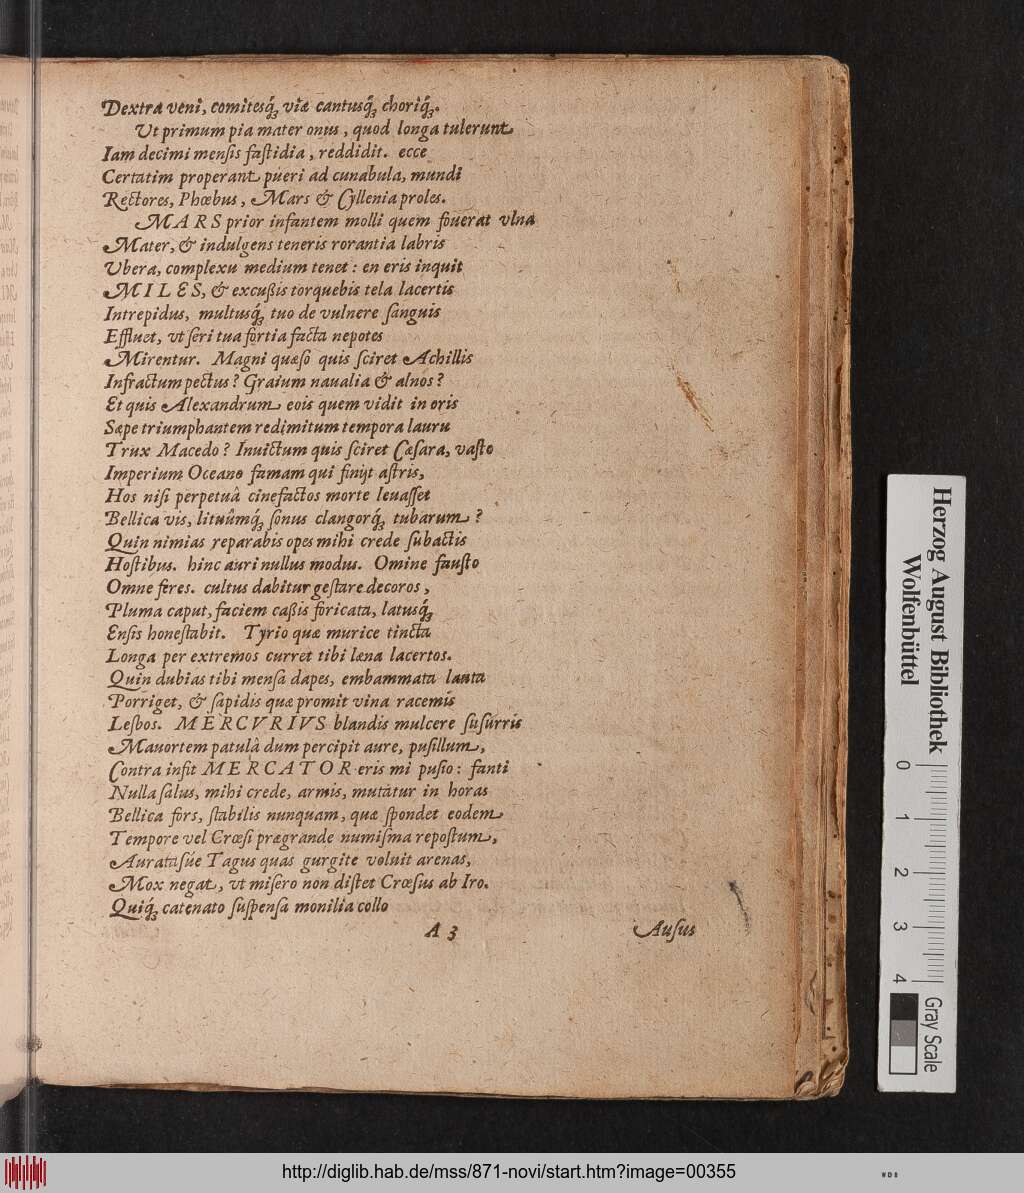 Dextra veni, comitesq́ꝫ viæ cantusq́ꝫ choriq́ꝫ.
Ut primum pia mater onus, quod longa tulerunt
Iam decimi mensis fastidia, reddidit. ecce
Certatim properant pueri ad cunabula, mundi
Rectores, Phœbus, Mars & Cyllenia proles.
MARS prior infantem molli quem fouerat vlna
Mater, & indulgens teneris rorantia labris
Vbera, complexu medium tenet: en eris inquit
MILES, & excußis torquebis tela lacertis
Intrepidus, multusq́ꝫ tuo de vulnere sanguis
Effluet, vt seri tua fortia facta nepotes
Mirentur. Magni quæso quis sciret Achillis
Infractum pectus? Graium naualia & alnos?
Et quis Alexandrum eois quem vidit in oris
Sæpe triumphantem redimitum tempora lauru
Trux Macedo? Inuictum quis sciret Cæsara, vasto
Imperium Oceano famam qui finijt astris,
Hos nisi perpetuâ cinefactos morte leuasset
Bellica vis, lituûmq́ꝫ sonus clangorq́ꝫ tubarum?
Quin nimias reparabis opes mihi crede subactis
Hostibus. hinc auri nullus modus. Omine fausto
Omne feres. cultus dabitur gestare decoros,
Pluma caput, faciem caßis foricata, latusq́ꝫ
Ensis honestabit. Tyrio quæ murice tincta
Longa per extremos curret tibi læna lacertos.
Quin dubias tibi mensa dapes, embammata lauta
Porriget, & sapidis quæ promit vina racemis
Lesbos. MERCVRIVS blandis mulcere susurris
Mauortem patulâ dum percipit aure, pusillum,
Contra infit MERCATOR eris mi pusio: fanti
Nulla salus, mihi crede, armis, mutatur in horas
Bellica fors, stabilis nunquam, quæ spondet eodem
Tempore vel Crœsi prægrande numisma repostum,
Auratasúe Tagus quas gurgite voluit arenas,
Mox negat, vt misero non distet Crœsus ab Iro.
Quiq́ꝫ catenato suspensa monilia collo
A 3 Ausus
Herzog August Bibliothek
Wolfenbüttel
0 1 2 3 4
Gray Scale
http://diglib.hab.de/mss/871-novi/start.htm?image=00355
WDB